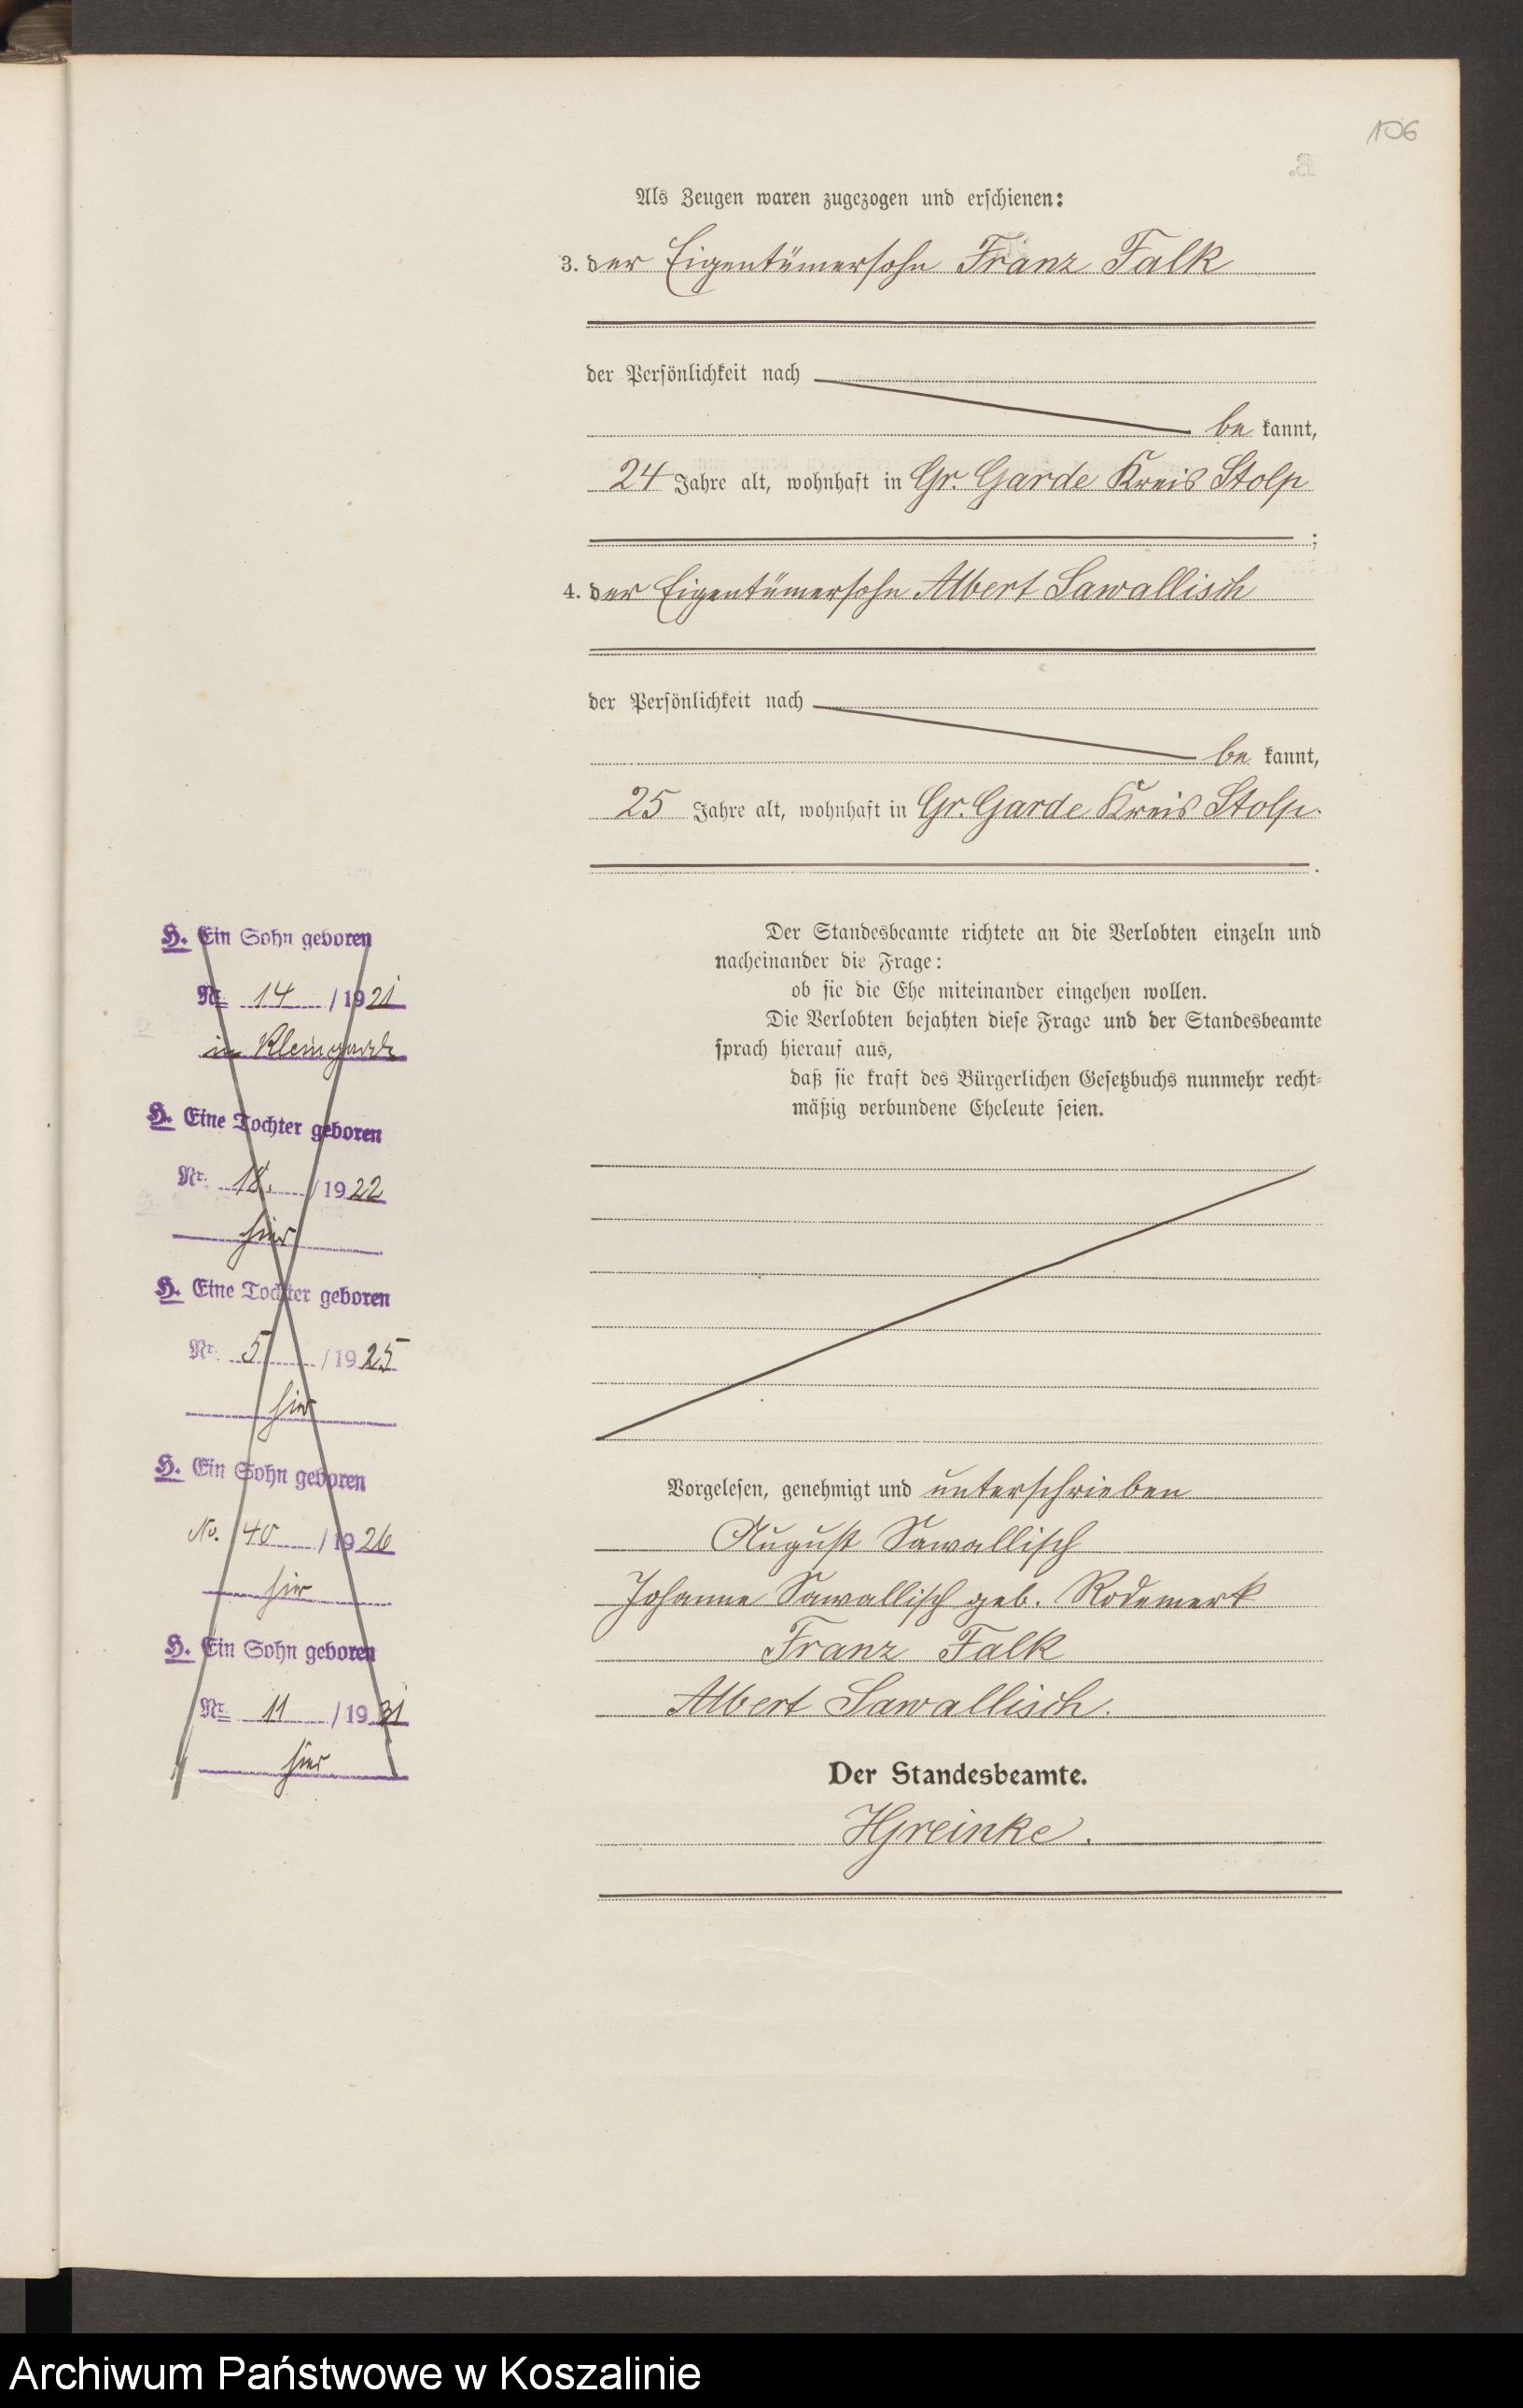 106
Als Zeugen waren zugezogen und erschienen:
3. der Eigentümersohn Franz Falk
der Persönlichkeit nach
be kannt,
24 Jahre alt, wohnhaft in Gr. Garde Kreis Stolp
;
4. der Eigentümersohn Albert Sawallisch
der Persönlichkeit nach
be kannt,
25 Jahre alt, wohnhaft in Gr. Garde Kreis Stolp.
.
H. Ein Sohn geboren
Nr. 14 / 1921
in Kleingarde
H. Eine Tochter geboren
Nr. 18. / 1922
hier
H. Eine Tochter geboren
Nr. 5 / 1925
hier
H. Ein Sohn geboren
No. 40 / 1926
hier
H. Ein Sohn geboren
Nr. 11 / 1931
hier
Der Standesbeamte richtete an die Verlobten einzeln und
nacheinander die Frage:
ob sie die Ehe miteinander eingehen wollen.
Die Verlobten bejahten diese Frage und der Standesbeamte
sprach hierauf aus,
daß sie kraft des Bürgerlichen Gesetzbuchs nunmehr recht-
mäßig verbundene Eheleute seien.
Vorgelesen, genehmigt und unterschrieben
August Sawallisch
Johanne Sawallisch geb. Rodemerk
Franz Falk
Albert Sawallisch.
Der Standesbeamte.
HGreinke.
Archiwum Państwowe w Koszalinie